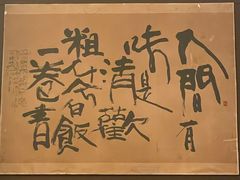 人間有
味是清歡
粗茶白飯
一卷書